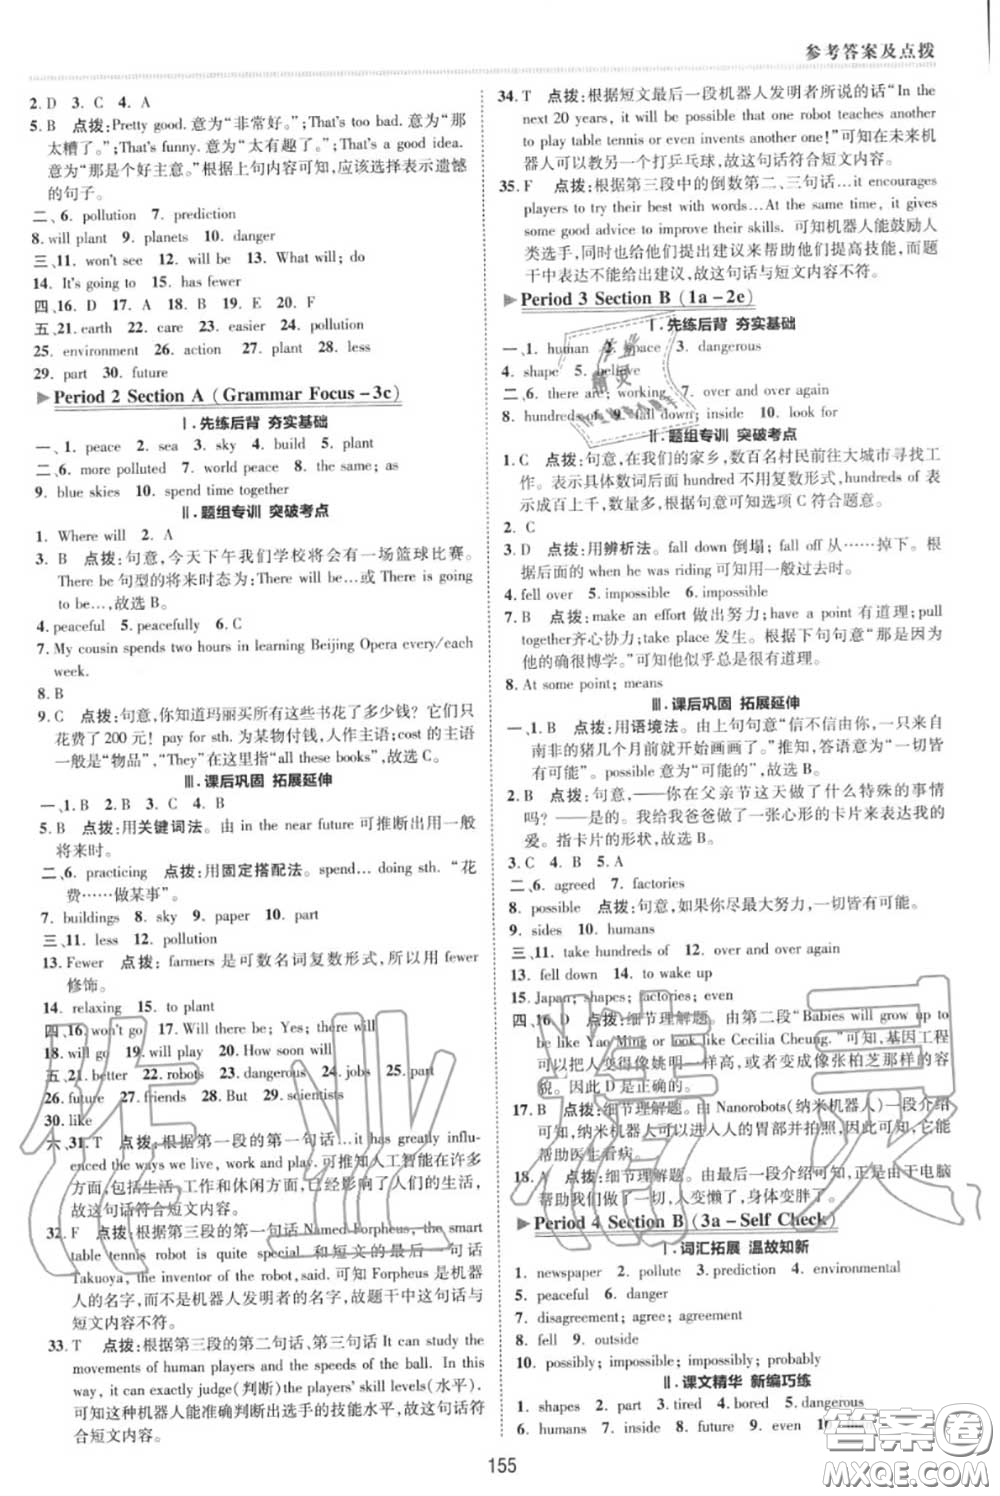 参考答案及点拨
2. D 3. C 4. A
5. B 点拨:Pretty good. 意为“非常好。”;That's too bad. 意为“那
太糟了。”;That's funny. 意为“太有趣了。”;That's a good idea.
意为“那是个好主意。”根据上句内容可知,应该选择表示遗憾
的句子。
二、6. pollution 7. prediction
8. will plant 9. planets 10. danger
三、11. won't see 12. will be 13. What will; do
14. It's going to 15. has fewer
四、16. D 17. D 18. A 19. D 20. A
五、21. earth 22. care 23. easier 24. pollution
25. environment 26. action 27. plant 28. less
29. part 30. future
Period 2 Section A (Grammar Focus-3c)
Ⅰ·先练后背 夯实基础
一、1. peace 2. sea 3. sky 4. build 5. plant
二、6. more polluted 7. world peace 8. the same; as
9. blue skies 10. spend time together
Ⅱ·题组专训 突破考点
1. Where will 2. A
3. B 点拨:句意,今天下午我们学校将会有一场篮球比赛。
There be 句型的将来时态为:There will be…或 There is going
to be…,故选 B。
4. peaceful 5. peacefully 6. C
7. My cousin spends two hours in learning Beijing Opera every/each
week.
8. B
9. C 点拨:句意,你知道玛丽买所有这些书花了多少钱?它们只
花费了 200 元!pay for sth. 为某物付钱,人作主语;cost 的主语
一般是“物品”,“They”在这里指“all these books”,故选 C。
Ⅲ·课后巩固 拓展延伸
一、1. B 2. A 3. C 4. B
5. B 点拨:用关键词法。由 in the near future 可推断出用一般
将来时。
二、6. practicing 点拨:用固定搭配法。spend…doing sth. “花
费……做某事”。
7. buildings 8. sky 9. paper 10. part
三、11. less 12. pollution
13. Fewer 点拨:farmers 是可数名词复数形式,所以用 fewer
修饰。
14. relaxing 15. to plant
四、16. won't go 17. Will there be; Yes; there will
18. will go 19. will play 20. How soon will
五、21. better 22. robots 23. dangerous 24. jobs 25. part
26. future 27. friends 28. But 29. scientists
30. like
六、31. T 点拨:根据第一段的第一句话…it has greatly influ-
enced the ways we live, work and play. 可推知人工智能在许多
方面,包括生活、工作和休闲方面,已经影响了人们的生活,
故这句话符合短文内容。
32. F 点拨:根据第三段的第一句话 Named Forpheus, the smart
table tennis robot is quite special. 和短文的最后一句话
Takuoya, the inventor of the robot,said. 可知 Forpheus 是机器
人的名字,而不是机器人发明者的名字,故题干中这句话与
短文内容不符。
33. T 点拨:根据第三段的第二句话,第三句话 It can study the
movements of human players and the speeds of the ball. In this
way, it can exactly judge(判断)the players' skill levels(水平).
可知这种机器人能准确判断出选手的技能水平,故这句话符
合短文内容。
34. T 点拨:根据短文最后一段机器人发明者所说的话“In the
next 20 years, it will be possible that one robot teaches another
to play table tennis or even invents another one!”可知在未来机
器人可以教另一个打乒乓球,故这句话符合短文内容。
35. F 点拨:根据第三段中的倒数第二、三句话…it encourages
players to try their best with words…At the same time, it gives
some good advice to improve their skills. 可知机器人能鼓励人
类选手,同时也给他们提出建议来帮助他们提高技能,而题
干中表达不能给出建议,故这句话与短文内容不符。
Period 3 Section B (1a-2e)
Ⅰ·先练后背 夯实基础
一、1. human 2. space 3. dangerous
4. shape 5. believe
二、6. there are; working 7. over and over again
8. hundreds of 9. fall down; inside 10. look for
Ⅱ·题组专训 突破考点
1. C 点拨:句意,在我们的家乡,数百名村民前往大城市寻找工
作。表示具体数词后面 hundred 不用复数形式,hundreds of 表
示成百上千,数量多,根据句意可知选项 C 符合题意。
2. C
3. D 点拨:用辨析法。fall down 倒塌;fall off 从……掉下来。根
据后面的 when he was riding 可知用一般过去时。
4. fell over 5. impossible 6. impossible
7. B 点拨:make an effort 做出努力;have a point 有道理;pull
together齐心协力;take place 发生。根据下句句意“那是因为
他的确很博学。”可知他似乎总是很有道理。
8. At some point; means
Ⅲ·课后巩固 拓展延伸
一、1. B 点拨:用语境法。由上句句意“信不信由你,一只来自
南非的猪几个月前就开始画画了。”推知,答语意为“一切皆
有可能”。possible 意为“可能的”,故选 B。
2. B 点拨:句意:——你在父亲节这天做了什么特殊的事情
吗?——是的。我给我爸爸做了一张心形的卡片来表达我的
爱。指卡片的形状,故选 B。
3. C 4. B 5. A
二、6. agreed 7. factories
8. possible 点拨:句意,如果你尽最大努力,一切皆有可能。
9. sides 10. humans
三、11. take hundreds of 12. over and over again
13. fell down 14. to wake up
15. Japan; shapes; factories; even
四、16. D 点拨:细节理解题。由第二段“Babies will grow up to
be like Yao Ming or look like Cecilia Cheung.”可知,基因工程
可以把人变得像姚明一样高,或者变成像张柏芝那样的容
貌。因此 D 是正确的。
17. B 点拨:细节理解题。由 Nanorobots(纳米机器人)一段介绍
可知,纳米机器人可以进入人的胃部并拍照,因此可知,它能
帮助医生看病。
18. A 点拨:细节理解题。由最后一段介绍可知,正是由于电脑
帮助我们做了一切,人变懒了,身体变胖了。
Period 4 Section B (3a-Self Check)
Ⅰ·词汇拓展 温故知新
1. newspaper 2. pollute 3. prediction 4. environmental
5. peaceful 6. danger
7. disagreement; agree; disagree
8. fell 9. outside
10. possibly; impossible; impossibly; probably
Ⅱ·课文精华 新编巧练
1. shapes 2. part 3. tired 4. bored 5. dangerous
6. humans 7. inside 8. future 9. even 10.
155
作业精灵
答案圈
MXQE.COM